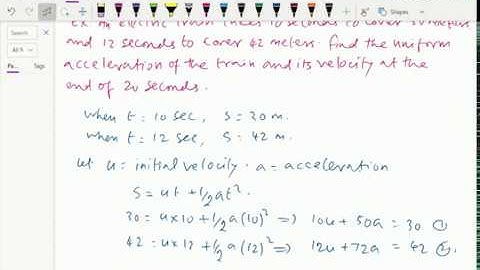 Shapes
Ex An electric train takes 10 seconds to cover 30 meters
and 12 seconds to cover 42 meters. Find the uniform
acceleration of the train and its velocity at the
end of 20 seconds.
when t = 10 sec, S = 30 m.
when t = 12 sec, S = 42 m.
Let u = initial velocity . a = acceleration
S = ut + 1/2 at².
30 = u×10 + 1/2 a(10)² => 10u + 50a = 30 ①
42 = u×12 + 1/2 a(12)² => 12u + 72a = 42 ②.